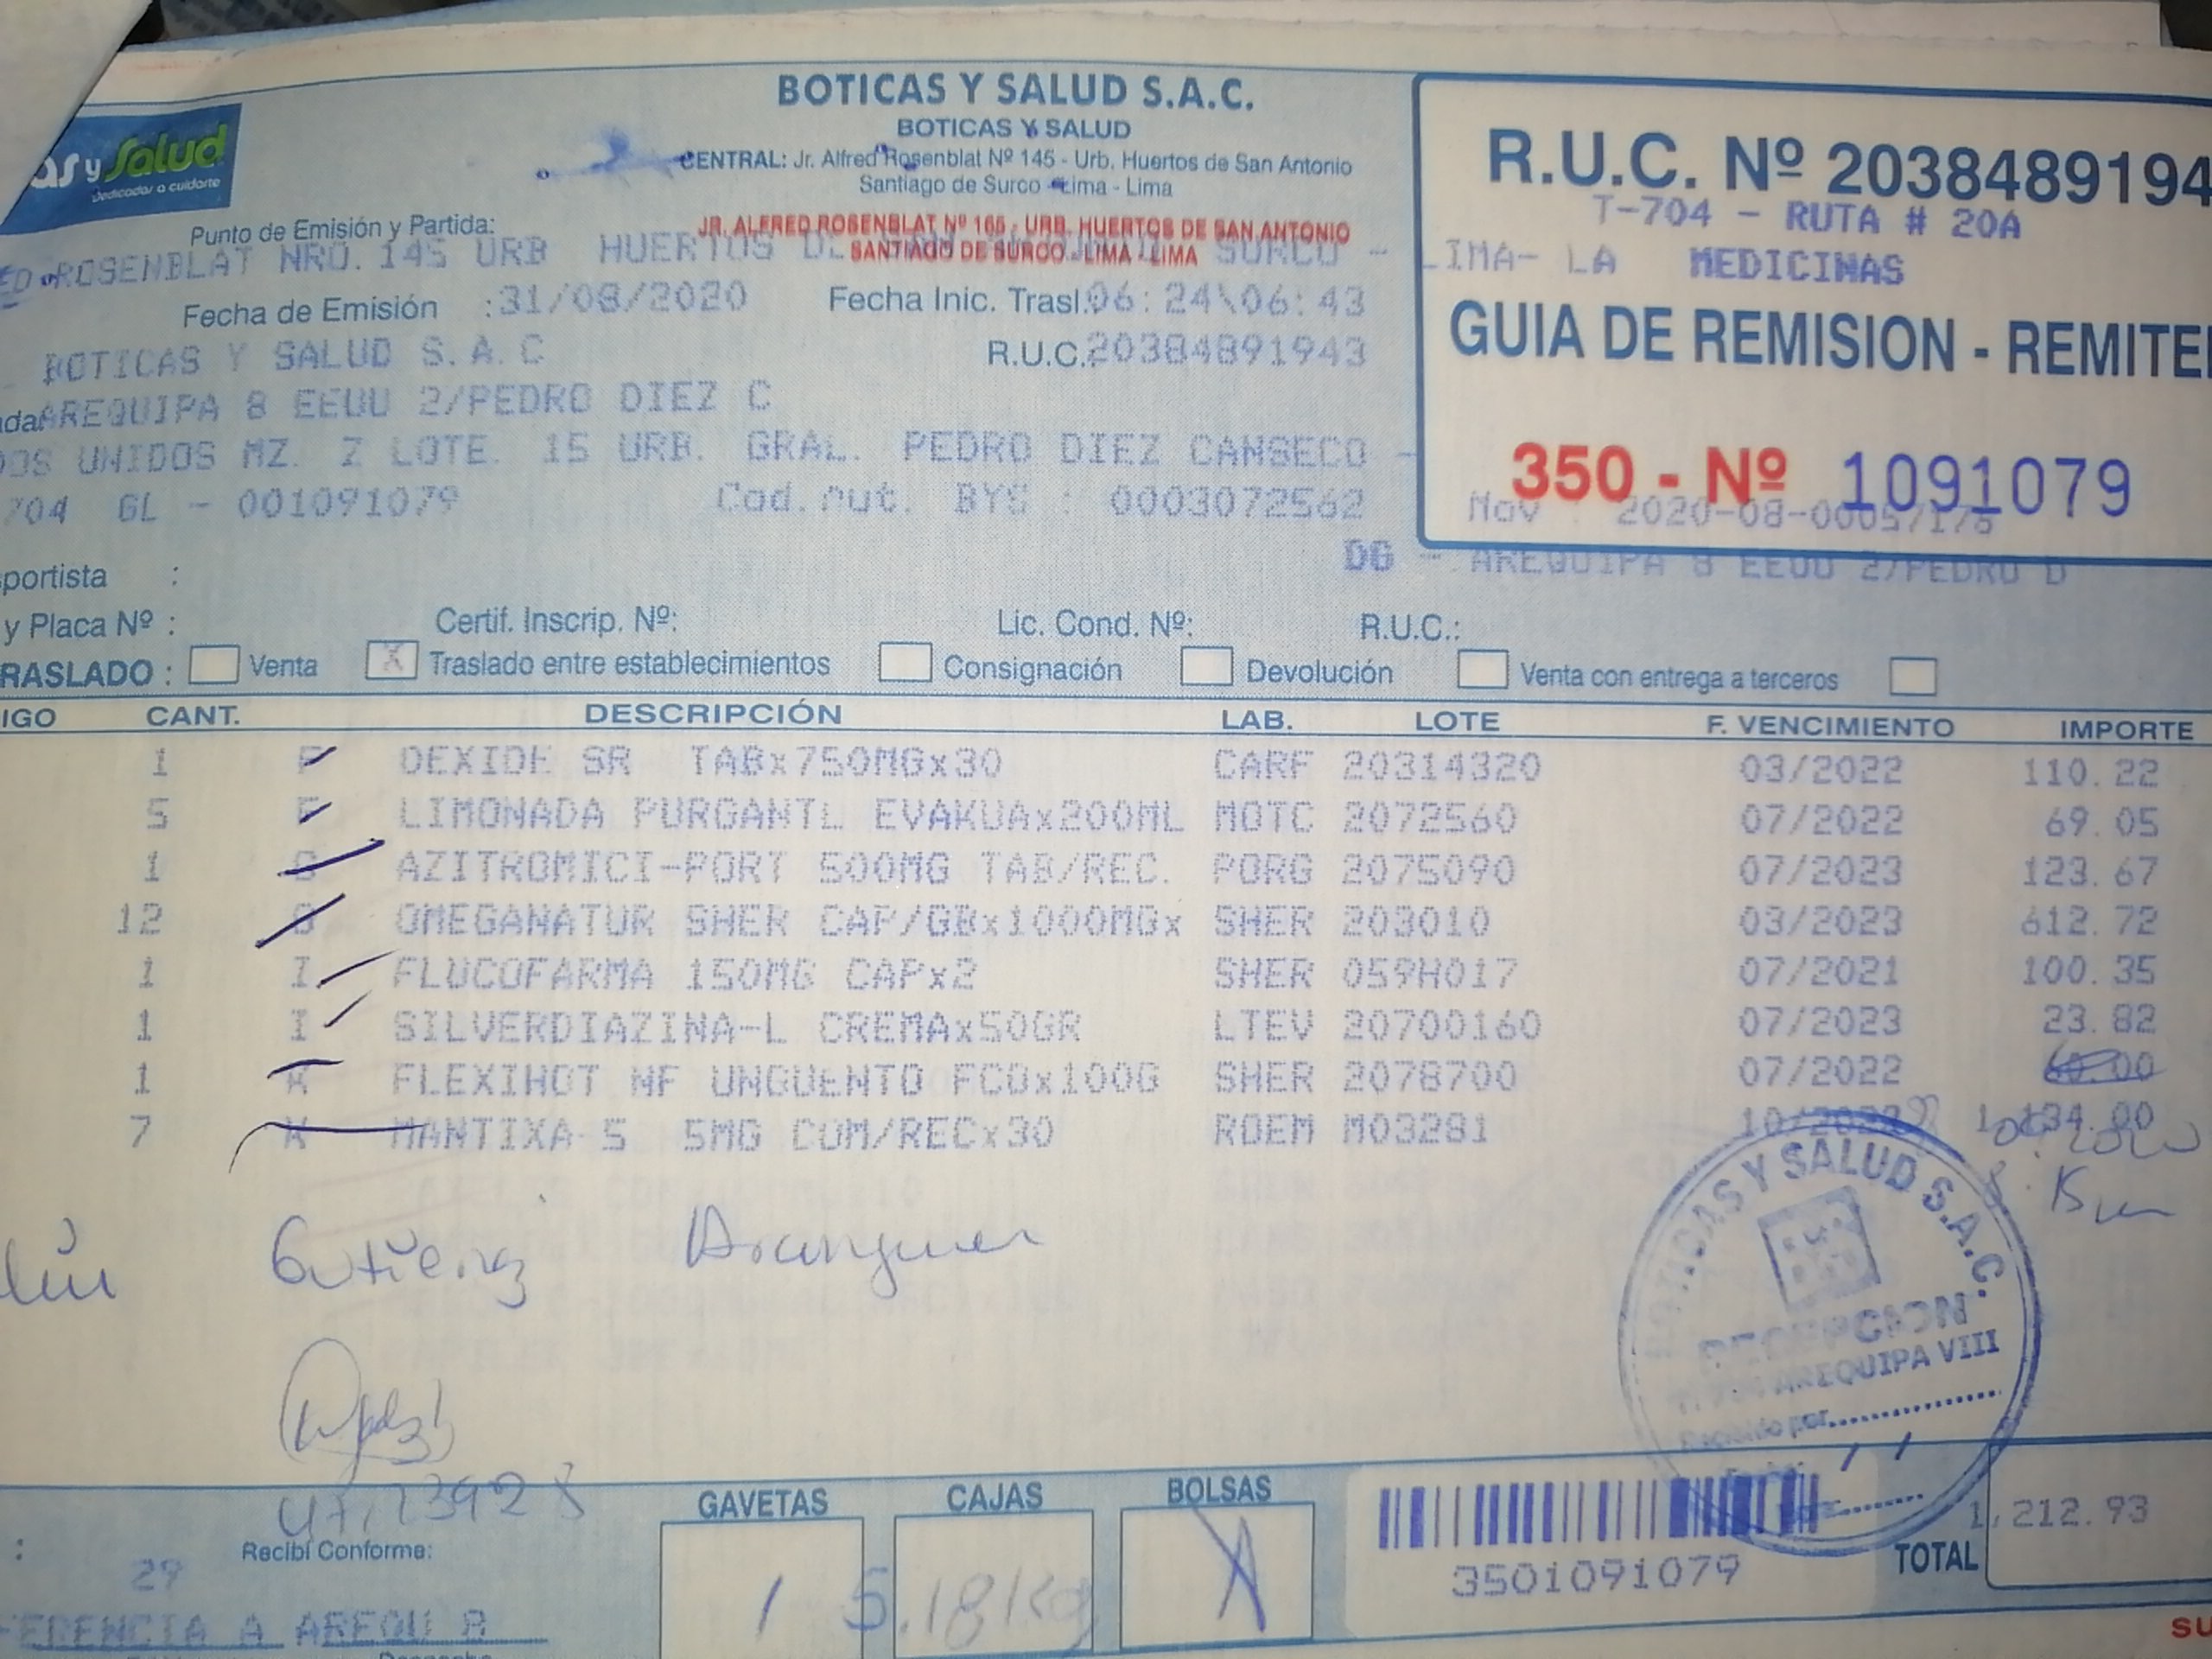 BOTICAS Y SALUD S.A.C.
BOTICAS Y SALUD
as y Salud
Dedicados a cuidarte
CENTRAL: Jr. Alfred Rosenblat Nº 145 - Urb. Huertos de San Antonio
Santiago de Surco - Lima - Lima
R.U.C. Nº 2038489194
T-704 - RUTA # 20A
Punto de Emisión y Partida:
JR. ALFRED ROSENBLAT Nº 165 - URB. HUERTOS DE SAN ANTONIO
SANTIAGO DE SURCO - LIMA - LIMA
ED ROSENBLAT NRO. 145 URB HUERTOS DE SURCO - LIMA- LA MEDICINAS
Fecha de Emisión :31/08/2020 Fecha Inic. Trasl. 06:24\06:43
GUIA DE REMISION - REMITE
BOTICAS Y SALUD S.A.C R.U.C. 20384891943
AREQUIPA 8 EEUU 2/PEDRO DIEZ C
DOS UNIDOS MZ. Z LOTE. 15 URB. GRAL. PEDRO DIEZ CANSECO -
350 - Nº 1091079
704 GL - 001091079 Cod.aut. BYS : 0003072562
Mov 2020-08-00057176
DG - AREQUIPA 8 EEUU 2/PEDRO D
portista :
y Placa Nº : Certif. Inscrip. Nº: Lic. Cond. Nº: R.U.C.:
RASLADO : Venta X Traslado entre establecimientos Consignación Devolución Venta con entrega a terceros
IGO CANT. DESCRIPCIÓN LAB. LOTE F. VENCIMIENTO IMPORTE
1 F DEXIDE SR TABx750MGx30 CARF 20314320 03/2022 110.22
5 F LIMONADA PURGANTE EVAKUAx200ML MOTC 2072560 07/2022 69.05
1 G AZITROMICI-PORT 500MG TAB/REC. PORG 2075090 07/2023 123.67
12 G OMEGANATUR SHER CAP/GBx1000MGx SHER 203010 03/2023 612.72
1 I FLUCOFARMA 150MG CAPx2 SHER 059H017 07/2021 100.35
1 I SILVERDIAZINA-L CREMAx50GR LTEV 20700160 07/2023 23.82
1 K FLEXIHOT NF UNGUENTO FCOx100G SHER 2078700 07/2022 60.00
7 K MANTIXA 5 5MG COM/RECx30 ROEM M03281 134.00
Gutierrez
BOTICAS Y SALUD S.A.C.
RECEPCION
AREQUIPA VIII
Recibido por
GAVETAS CAJAS BOLSAS
Recibí Conforme:
29
1 5.18Kg
3501091079
TOTAL 1,212.93
FERENCIA A AREQU 8
SU